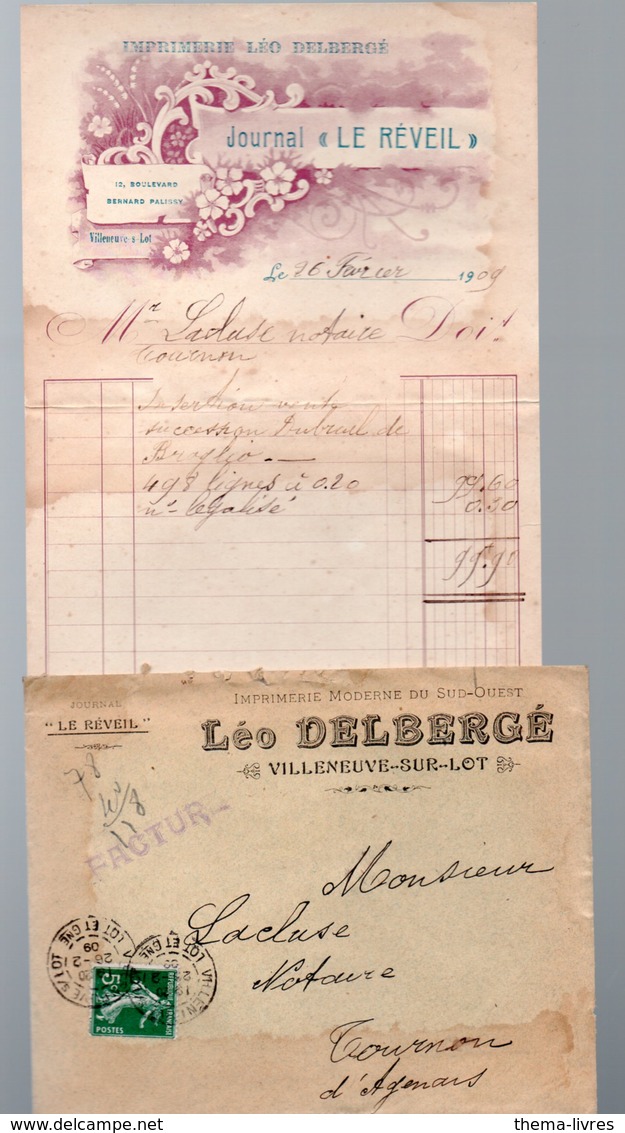 IMPRIMERIE LÉO DELBERGÉ
Journal « LE RÉVEIL »
12, BOULEVARD
BERNARD PALISSY
Villeneuve-s-Lot
Le 26 Février 1909
Mr Lacluse notaire Doit
Tournon
Insertion vente
succession Dubreuil de
Broglio
498 lignes à 0.20 99.60
no légalisé 0.30
99.90
JOURNAL
"LE RÉVEIL"
IMPRIMERIE MODERNE DU SUD-OUEST
LÉO DELBERGÉ
VILLENEUVE-SUR-LOT
78
FACTUR
Monsieur
Lacluse
Notaire
Tournon
d'Agenais
LOT ET GNE
26-2
09
5c
POSTES
REPUBLIQUE FRANÇAISE
thema-livres